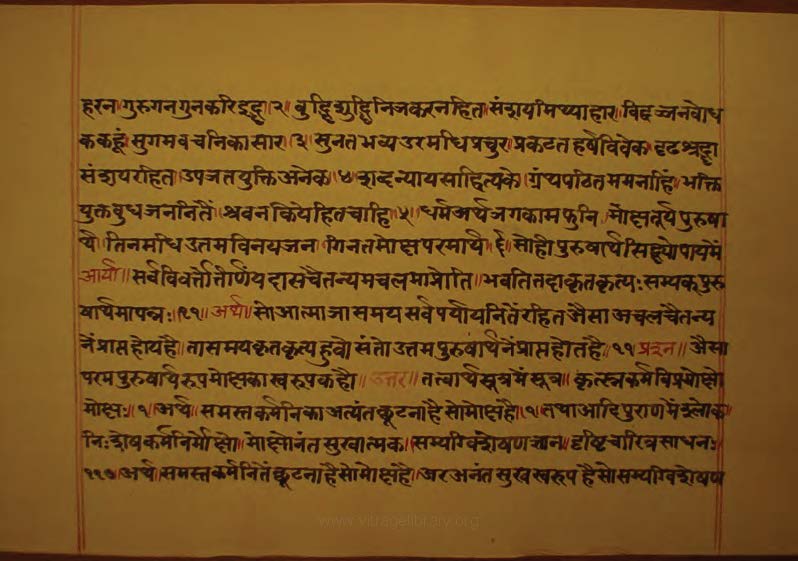 हरन।गुरुगनगुनकरिइद्ध।२।बुद्धिशुद्धिनिजकरनहित।संशयमिथ्याहार।विद्वज्जनबोध
ककहूं।सुगमवचनिकासार।३।सुनतभव्यउरमधिप्रचुर।प्रकटतहर्षविवेक।दृढश्रद्धा
संशयरहित।उपजतयुक्तिअनेक।४।शब्दन्यायसाहित्यके।ग्रंथपठितममनाहिं।भक्ति
युक्तबुधजननितैं।श्रवनकियेहितचाहि।५।धर्मअर्थजगकामफुनि।मोक्षतूर्यपुरुषा
र्थ।तिनमधिउत्तमविनयजन।गिनतमोक्षपरमार्थ।६।सोहीपुरुषार्थसिद्ध्योपायमें
आर्या॥सर्वविवर्त्तोत्तीर्णंयदासचैतन्यमचलमाप्नोति।भवतितदाकृतकृत्यःसम्यक्पुरु
षार्थमापन्नः।११।अर्थ॥सोआत्माजासमयसर्वपर्यायनितैंरहितऔसाअचलचैतन्य
नेंप्राप्तहोयहै।तासमयकृतकृत्यहुवोसंतोउत्तमपुरुषार्थनेंप्राप्तहोतहै।११।प्रश्न॥औसा
परमपुरुषार्थरूपमोक्षकास्वरूपकहौ।उत्तर॥तत्वार्थसूत्रमेंसूत्र॥कृत्स्नकर्मविप्रमोक्षो
मोक्षः।१।अर्थ॥समस्तकर्मनिकाअत्यंतछूटनाहैसोमोक्षहै।१।तथाआदिपुराणमेंश्लोक॥
निःशेषकर्मनिर्मोक्षो।मोक्षोनंतसुखात्मकः।सम्यग्विशेषणज्ञान।दृष्टिचारित्रसाधनः
११७।अर्थ॥समस्तकर्मनितैंछूटनाहैसोमोक्षहै।अरअनंतसुखस्वरूपहैसोसम्यग्विशेषण
www.vitragelibrary.org